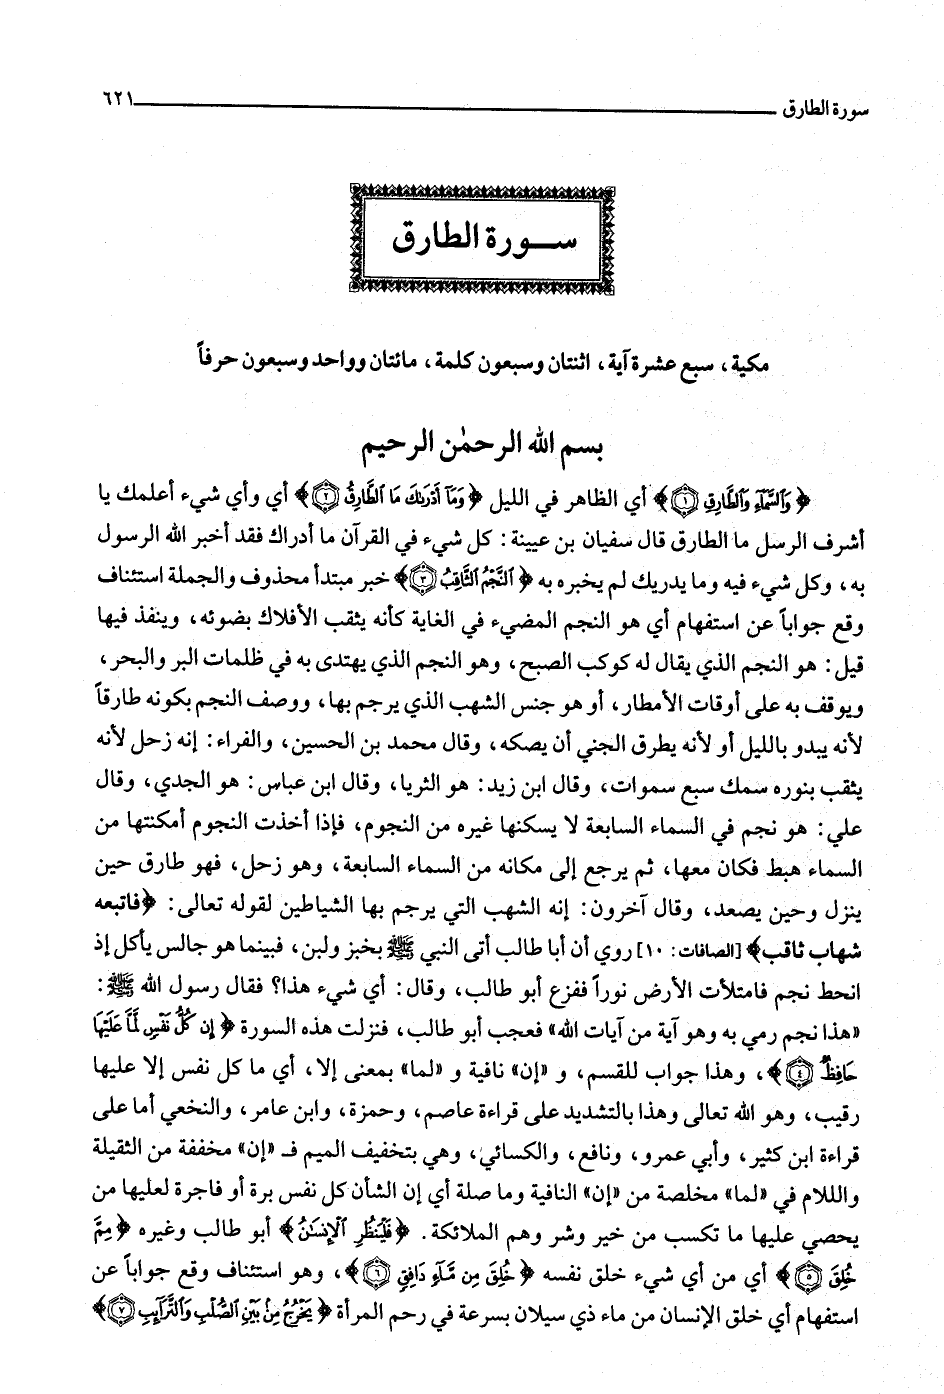 سورة الطارق ٦٢١
ســورة الطارق
مكية، سبع عشرة آية، اثنتان وسبعون كلمة، مائتان وواحد وسبعون حرفاً
بسم الله الرحمٰن الرحيم
﴿وَٱلسَّمَآءِ وَٱلطَّارِقِ ١﴾ أي الظاهر في الليل ﴿وَمَآ أَدْرَىٰكَ مَا ٱلطَّارِقُ ٢﴾ أي وأي شيء أعلمك يا
أشرف الرسل ما الطارق قال سفيان بن عيينة: كل شيء في القرآن ما أدراك فقد أخبر الله الرسول
به، وكل شيء فيه وما يدريك لم يخبره به ﴿ٱلنَّجْمُ ٱلثَّاقِبُ ٣﴾ خبر مبتدأ محذوف والجملة استئناف
وقع جواباً عن استفهام أي هو النجم المضيء في الغاية كأنه يثقب الأفلاك بضوئه، وينفذ فيها
قيل: هو النجم الذي يقال له كوكب الصبح، وهو النجم الذي يهتدى به في ظلمات البر والبحر،
ويوقف به على أوقات الأمطار، أو هو جنس الشهب الذي يرجم بها، ووصف النجم بكونه طارقاً
لأنه يبدو بالليل أو لأنه يطرق الجني أن يصكه، وقال محمد بن الحسين، والفراء: إنه زحل لأنه
يثقب بنوره سمك سبع سموات، وقال ابن زيد: هو الثريا، وقال ابن عباس: هو الجدي، وقال
علي: هو نجم في السماء السابعة لا يسكنها غيره من النجوم، فإذا أخذت النجوم أمكنتها من
السماء هبط فكان معها، ثم يرجع إلى مكانه من السماء السابعة، وهو زحل، فهو طارق حين
ينزل وحين يصعد، وقال آخرون: إنه الشهب التي يرجم بها الشياطين لقوله تعالى: ﴿فاتبعه
شهاب ثاقب﴾ [الصافات: ١٠] روي أن أبا طالب أتى النبي ﷺ بخبز ولبن، فبينما هو جالس يأكل إذ
انحط نجم فامتلأت الأرض نوراً ففزع أبو طالب، وقال: أي شيء هذا؟ فقال رسول الله ﷺ:
«هذا نجم رمي به وهو آية من آيات الله» فعجب أبو طالب، فنزلت هذه السورة ﴿إِن كُلُّ نَفْسٍ لَّمَّا عَلَيْهَا
حَافِظٌ ٤﴾، وهذا جواب للقسم، و «إن» نافية و «لما» بمعنى إلا، أي ما كل نفس إلا عليها
رقيب، وهو الله تعالى وهذا بالتشديد على قراءة عاصم، وحمزة، وابن عامر، والنخعي أما على
قراءة ابن كثير، وأبي عمرو، ونافع، والكسائي، وهي بتخفيف الميم فـ «إن» مخففة من الثقيلة
والللام في «لما» مخلصة من «إن» النافية وما صلة أي إن الشأن كل نفس برة أو فاجرة لعليها من
يحصي عليها ما تكسب من خير وشر وهم الملائكة. ﴿فَلْيَنظُرِ ٱلْإِنسَٰنُ﴾ أبو طالب وغيره ﴿مِمَّ
خُلِقَ ٥﴾ أي من أي شيء خلق نفسه ﴿خُلِقَ مِن مَّآءٍ دَافِقٍ ٦﴾، وهو استئناف وقع جواباً عن
استفهام أي خلق الإنسان من ماء ذي سيلان بسرعة في رحم المرأة ﴿يَخْرُجُ مِنۢ بَيْنِ ٱلصُّلْبِ وَٱلتَّرَآئِبِ ٧﴾